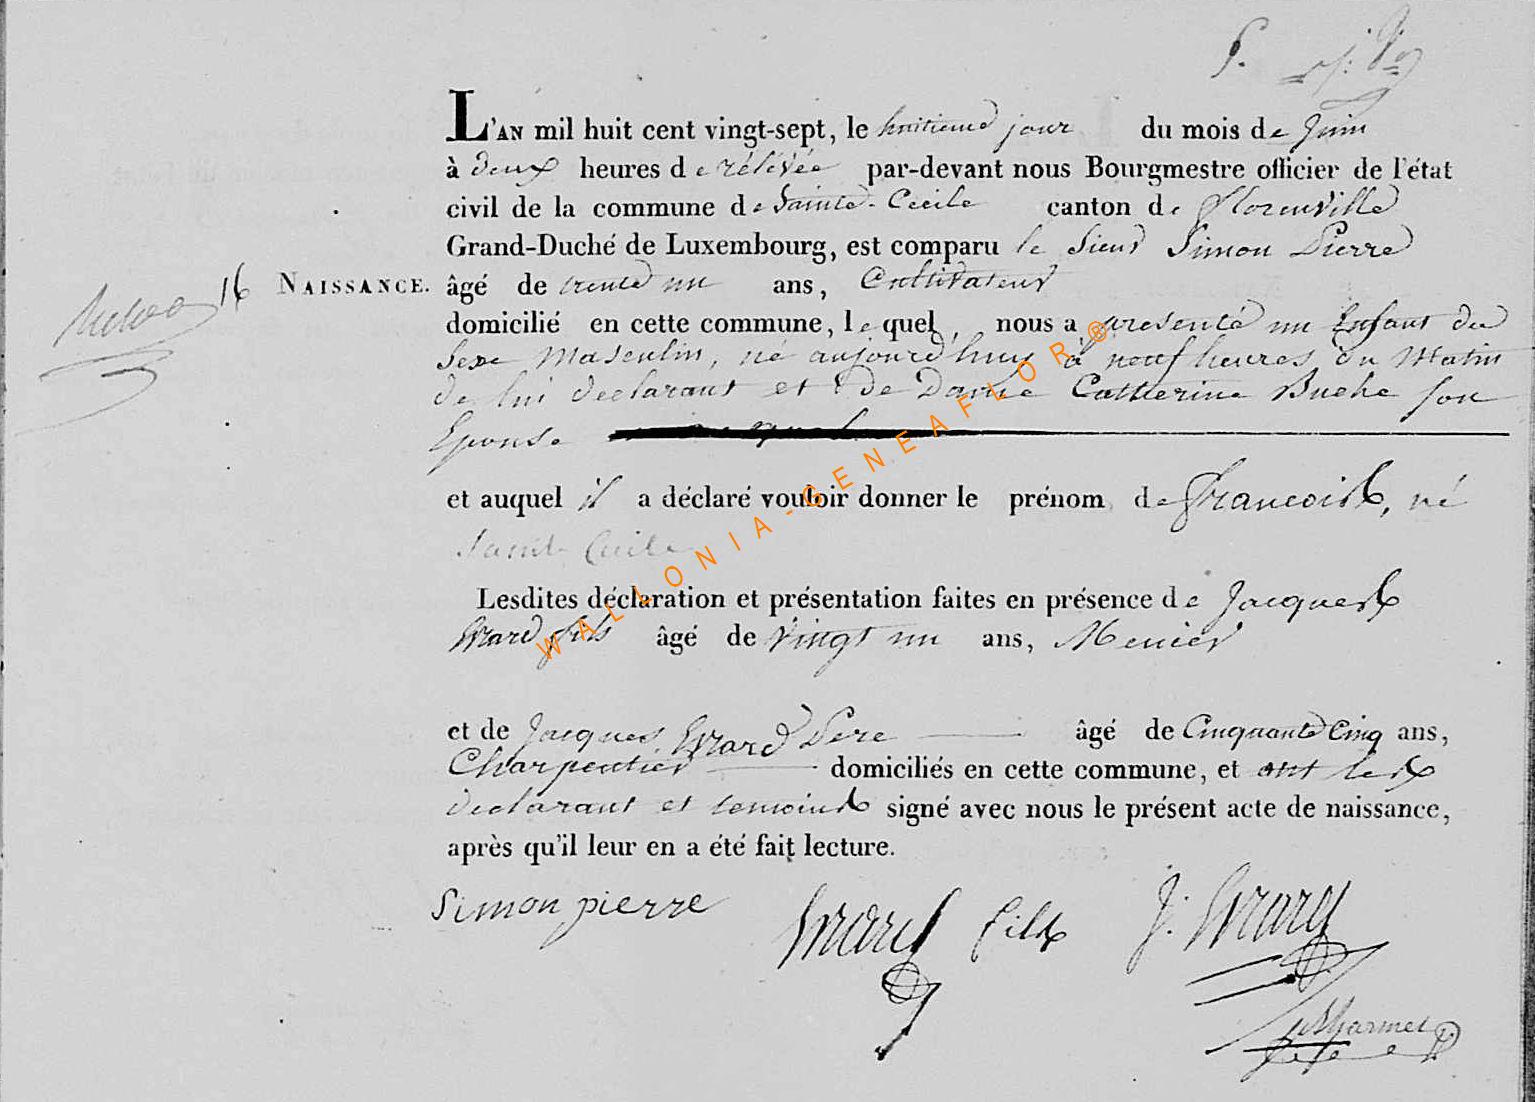 L'AN mil huit cent vingt-sept, le huitieme jour du mois de Juin
à deux heures de rélévée par-devant nous Bourgmestre officier de l'état
civil de la commune de Sainte-Cecile canton de Florenville
Grand-Duché de Luxembourg, est comparu le Sieur Simon Pierre
16 NAISSANCE. âgé de trente un ans, Cultivateur
domicilié en cette commune, lequel, nous a presenté un Enfant du
Sexe Masculin, né aujourd'huy à neuf heures du Matin
de lui declarant et de Dame Catherine Buche son
Epouse
et auquel il a déclaré vouloir donner le prénom de Francois, né
Sainte Cecile
Lesdites déclaration et présentation faites en présence de Jacques
Evrard fils âgé de Vingt un ans, Menier
et de Jacques Evrard Pere âgé de Cinquante Cinq ans,
Charpentier domiciliés en cette commune, et ont les
declarant et temoins signé avec nous le présent acte de naissance,
après qu'il leur en a été fait lecture.
Simon pierre Evrard fils J. Evrard
WALLONIA-GENEAFLOR®